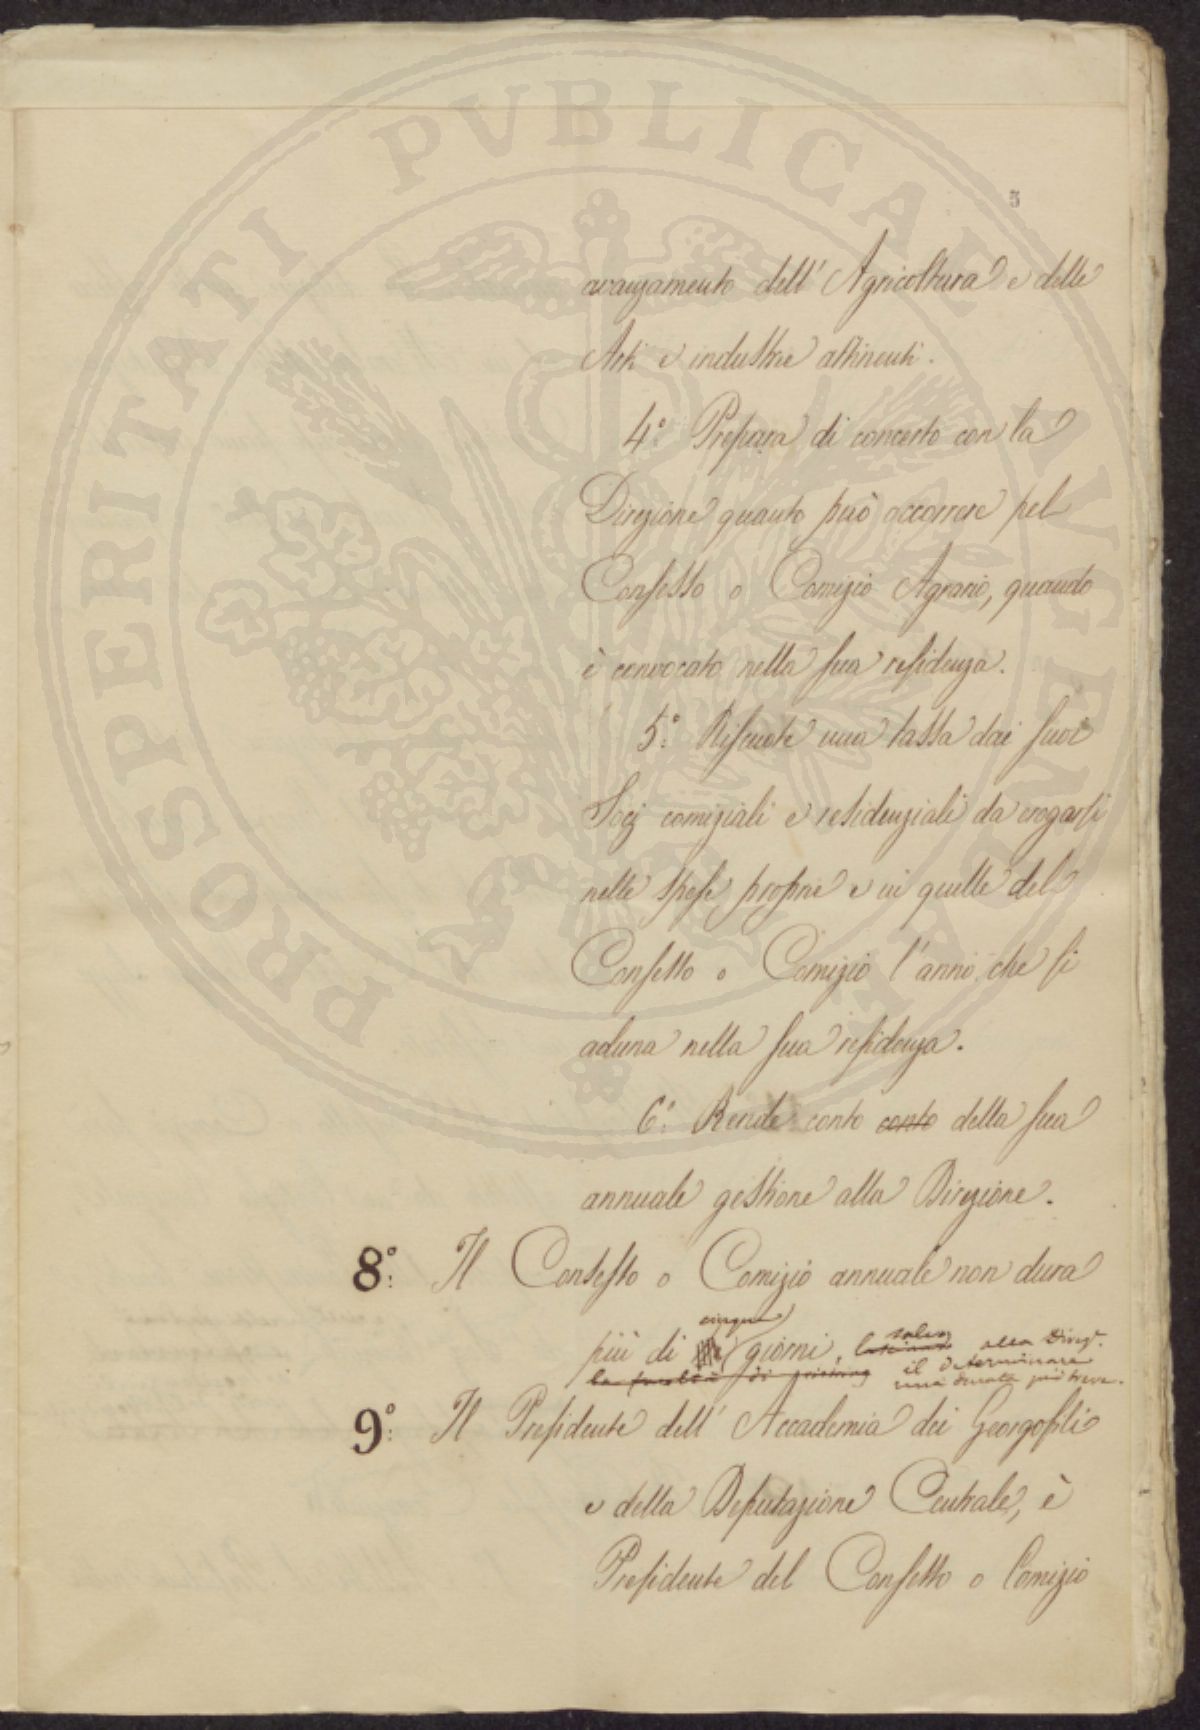 PROSPERITATI PVBLICAE AVGENDAE
5
avanzamento dell' Agricoltura e delle
Arti e industrie attinenti.
4.° Prepara di concerto con la
Direzione quanto può occorrere pel
Consesso o Comizio Agrario, quando
è convocato nella sua residenza.
5.° Riscuote una tassa dai suoi
Socj comiziali e residenziali da erogarsi
nelle spese proprie e in quelle del
Consesso o Comizio l'anno che si
aduna nella sua residenza.
6.° Rende conto conto della sua
annuale gestione alla Direzione.
8.° Il Consesso o Comizio annuale non dura
cinque
più di giorni, lasciando salvo alla Direz.e
la facoltà di il determinare
una durata più breve.
9.° Il Presidente dell' Accademia dei Georgofili
e della Deputazione Centrale, è
Presidente del Consesso o Comizio